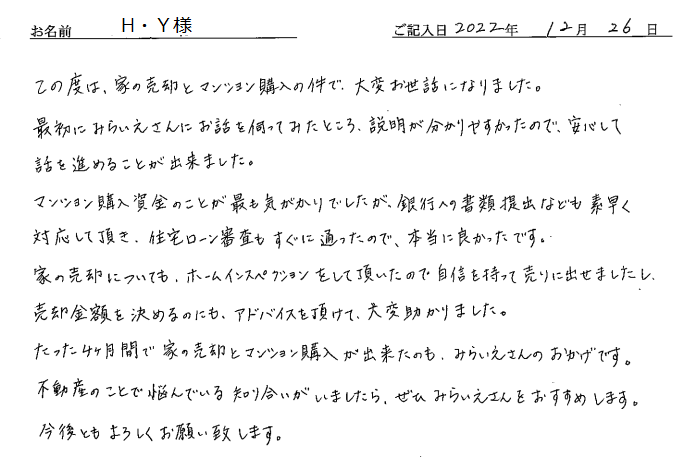 お名前 H・Y様 ご記入日 2022年 12月 26日
この度は、家の売却とマンション購入の件で、大変お世話になりました。
最初にみらいえさんにお話を伺ってみたところ、説明が分かりやすかったので、安心して
話を進めることが出来ました。
マンション購入資金のことが最も気がかりでしたが、銀行への書類提出なども素早く
対応して頂き、住宅ローン審査もすぐに通ったので、本当に良かったです。
家の売却についても、ホームインスペクションをして頂いたので自信を持って売りに出せましたし、
売却金額を決めるのにも、アドバイスを頂けて、大変助かりました。
たった4ヶ月間で家の売却とマンション購入が出来たのも、みらいえさんのおかげです。
不動産のことで悩んでいる知り合いがいましたら、ぜひみらいえさんをおすすめします。
今後ともよろしくお願い致します。